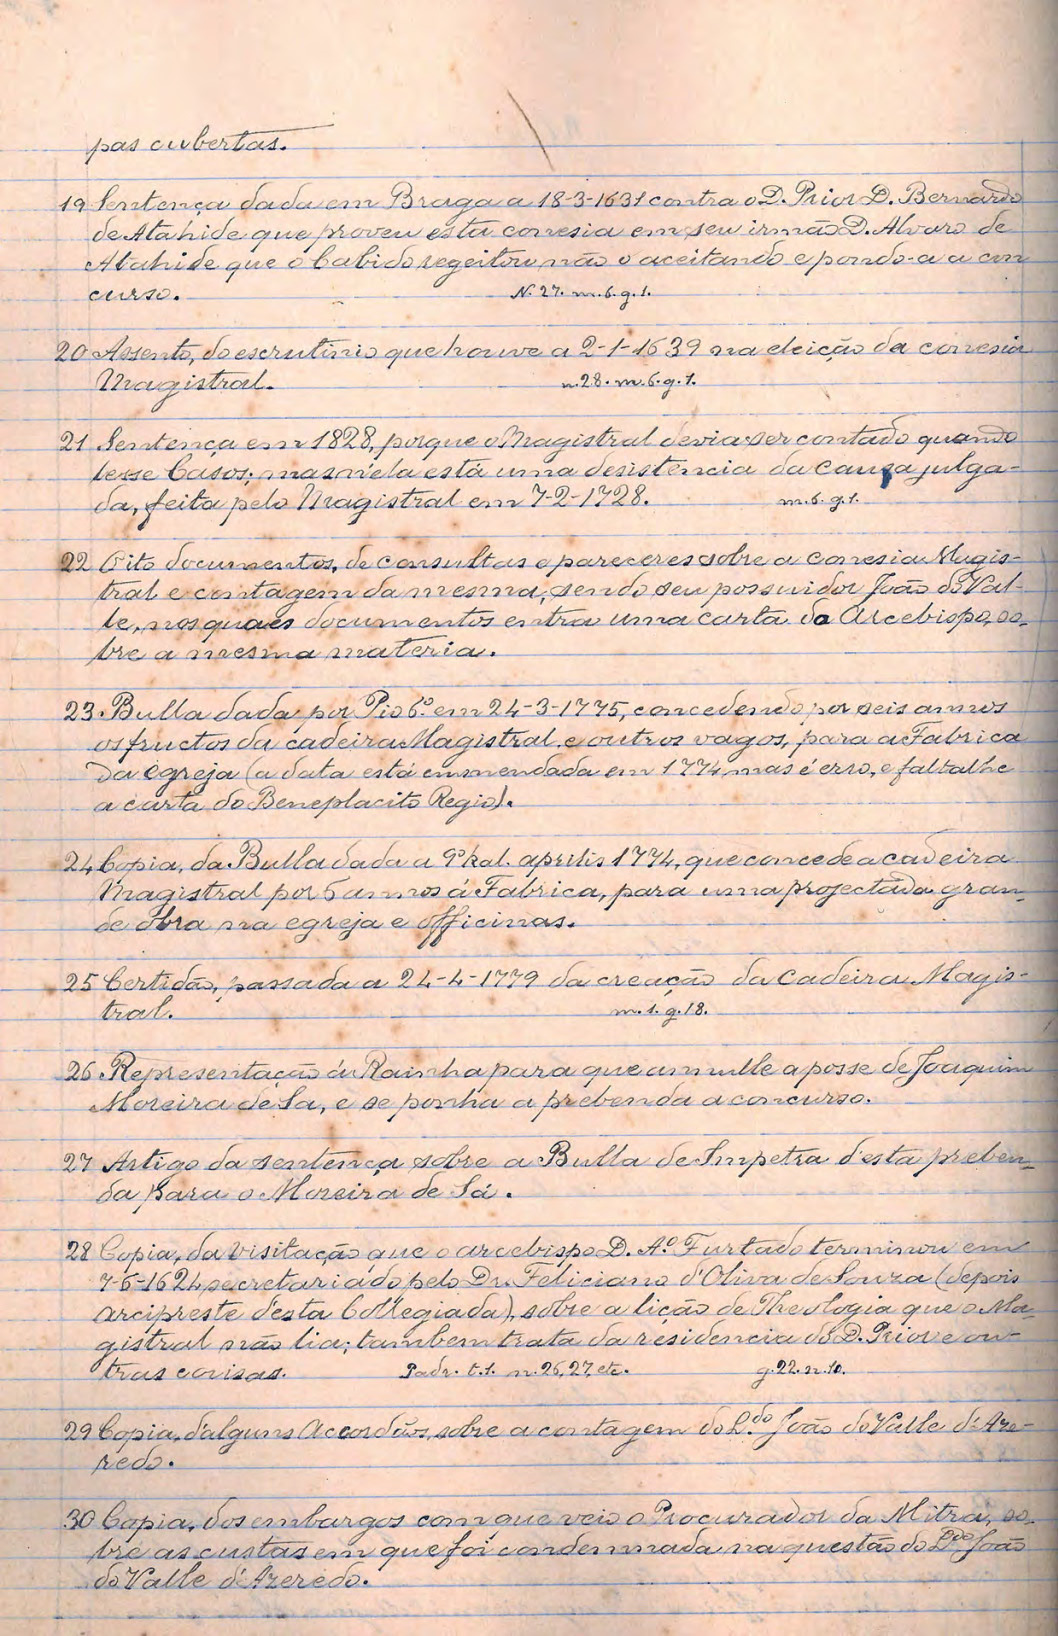 pas cubertas.
19 Sentença dada em Braga a 18-3-1631 contra o D. Prior D. Bernardo
de Atahide que proveu esta conesia em seu irmão D. Alvaro de
Atahide que o Cabido regeitou não o aceitando e pondo-a a con
curso. N. 27. m. 6. g. 1.
20 Assento, do escrutinio que houve a 2-1-1639 na eleição da conesia
Magistral. n. 28. m. 6. g. 1.
21 Sentença em 1828, porque o Magistral devia ser contado quando
lesse Casos; mas n'ela está uma desistencia da causa julga-
da, feita pelo Magistral em 7-2-1728. m. 6. g. 1.
22 Oito documentos, de consultas e pareceres sobre a conesia Magis-
tral e contagem da mesma, sendo seu possuidor João do Val-
le, nos quaes documentos entra uma carta do Arcebispo, so-
bre a mesma materia.
23. Bulla dada por Pio 6º em 24-3-1775, concedendo por seis annos
os fructos da cadeira Magistral e outros vagos, para a Fabrica
da egreja (a data está emmendada em 1774, mas é erro, e faltalhe
a carta do Beneplacito Regio).
24 Copia, da Bulla dada a 9º kal. aprilis 1774, que concede a cadeira
Magistral por 5 annos á Fabrica, para uma projectada gran-
de obra na egreja e officinas.
25 Certidão, passada a 24-4-1779 da creação da cadeira Magis-
tral. m. 1. g. 18.
26 Representação á Rainha para que annulle a posse de Joaquim
Moreira de Sa, e se ponha a prebenda a concurso.
27 Artigo da sentença sobre a Bulla de Impetra d'esta preben-
da para o Moreira de Sá.
28 Copia, da visitação que o arcebispo D. A.º Furtado terminou em
7-6-1624 secretariádo pelo Dr. Feliciano d'Oliva de Souza (depois
arcipreste d'esta Collegiada), sobre a lição de Theologia que o Ma-
gistral não lia; tambem trata da residencia do D. Prior e ou-
tras couisas. Padr. t. 1. n. 26, 27, etc. g. 22. n. 10.
29 Copia, d'alguns Accordãos, sobre a contagem do L.do João do Valle d'Aze-
redo.
30 Copia, dos embargos com que veio o Procurador da Mitra, so-
bre as custas em que foi condemnada na questão do L.do João
do Valle d'Azeredo.